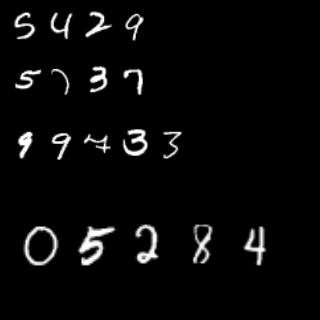 5429
5737
99733
05284